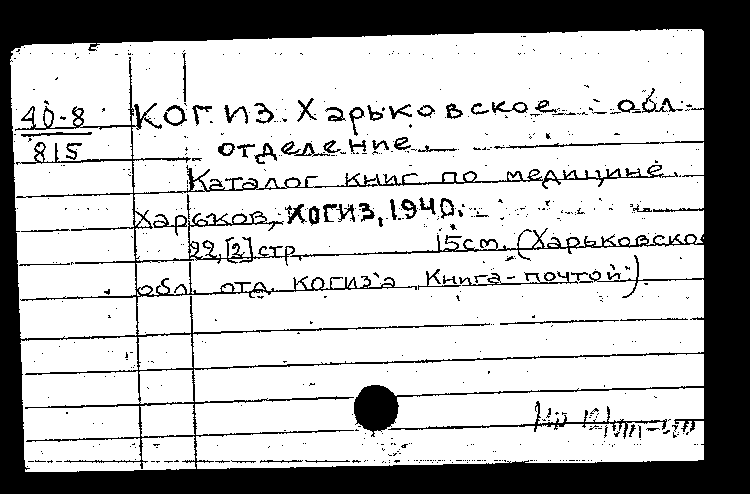 40-8
815
КОГИЗ. Харьковское обл.
отделение.
Каталог книг по медицине.
Харьков, КОГИЗ, 1940.
22, [2] стр. 15 см. (Харьковское
обл. отд. КОГИЗ'а Книга-почтой)
12/VIII-40